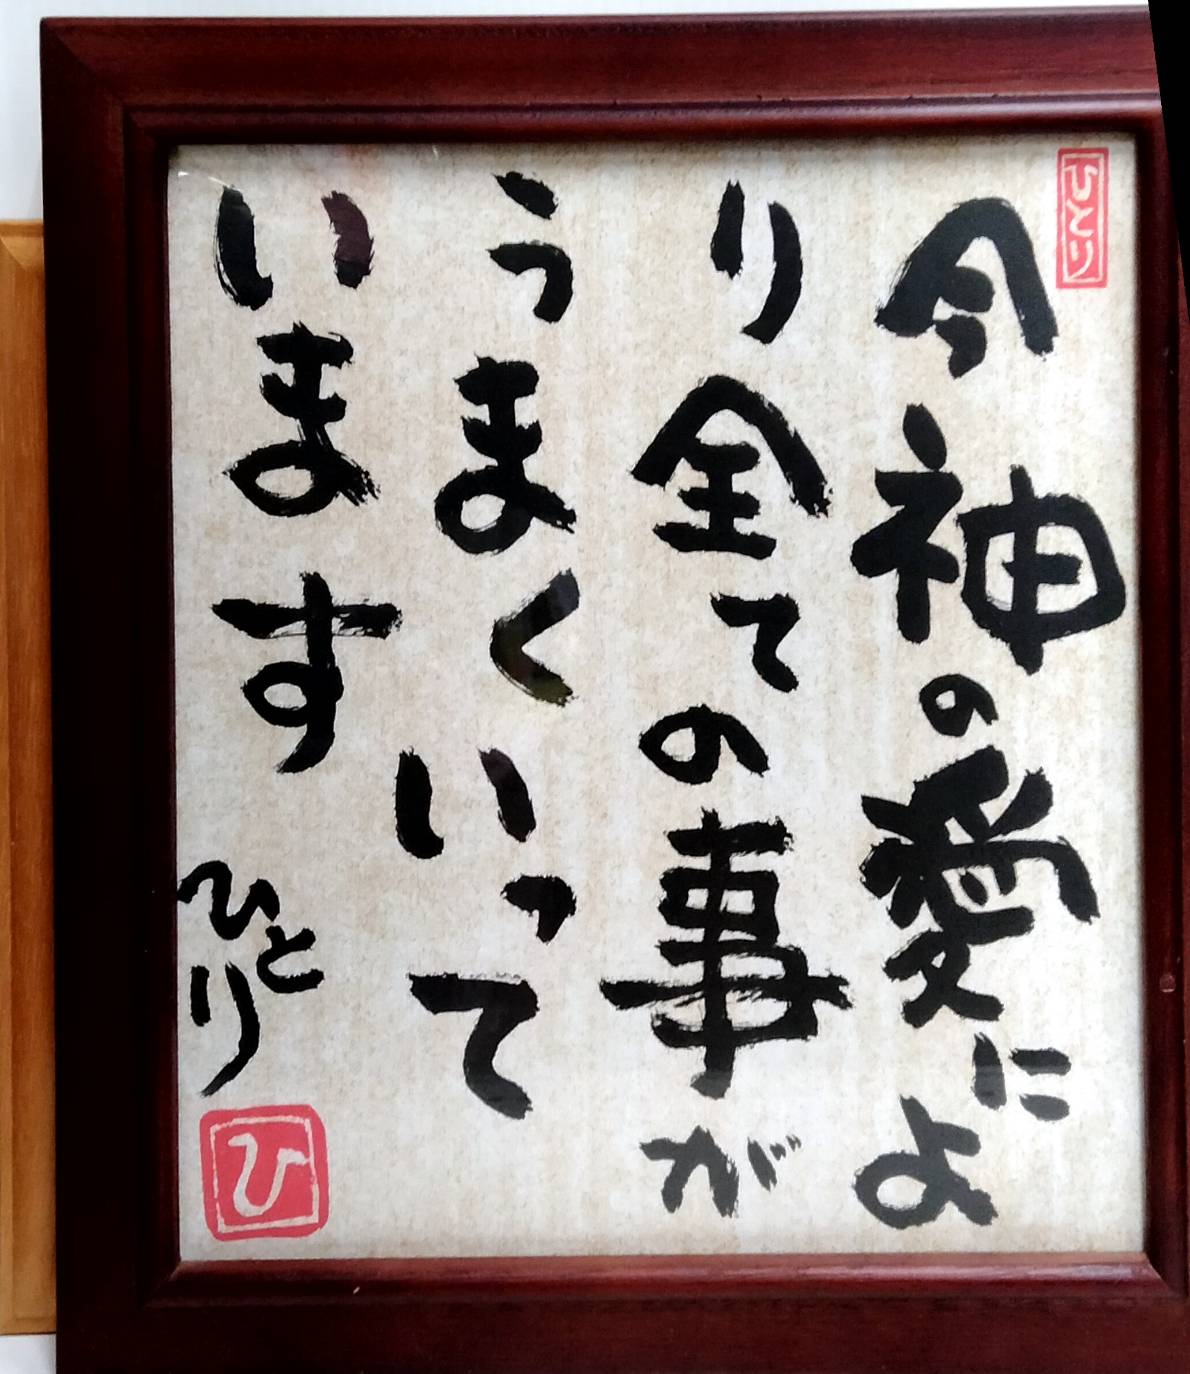 ひとり
今神の愛によ
り全ての事が
うまくいって
います
ひとり
ひ